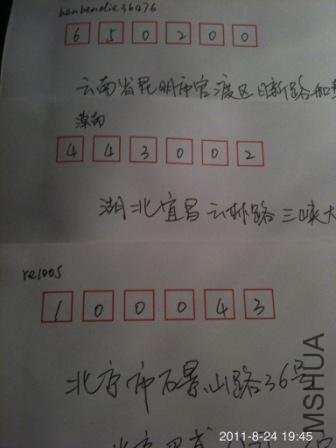 benbendie36476
650200
云南省昆明市官渡区日新路和
滇南
443002
湖北宜昌云林路三峡大
re1005
100043
北京市石景山路36号
2011-8-24 19:45
JMSHUA